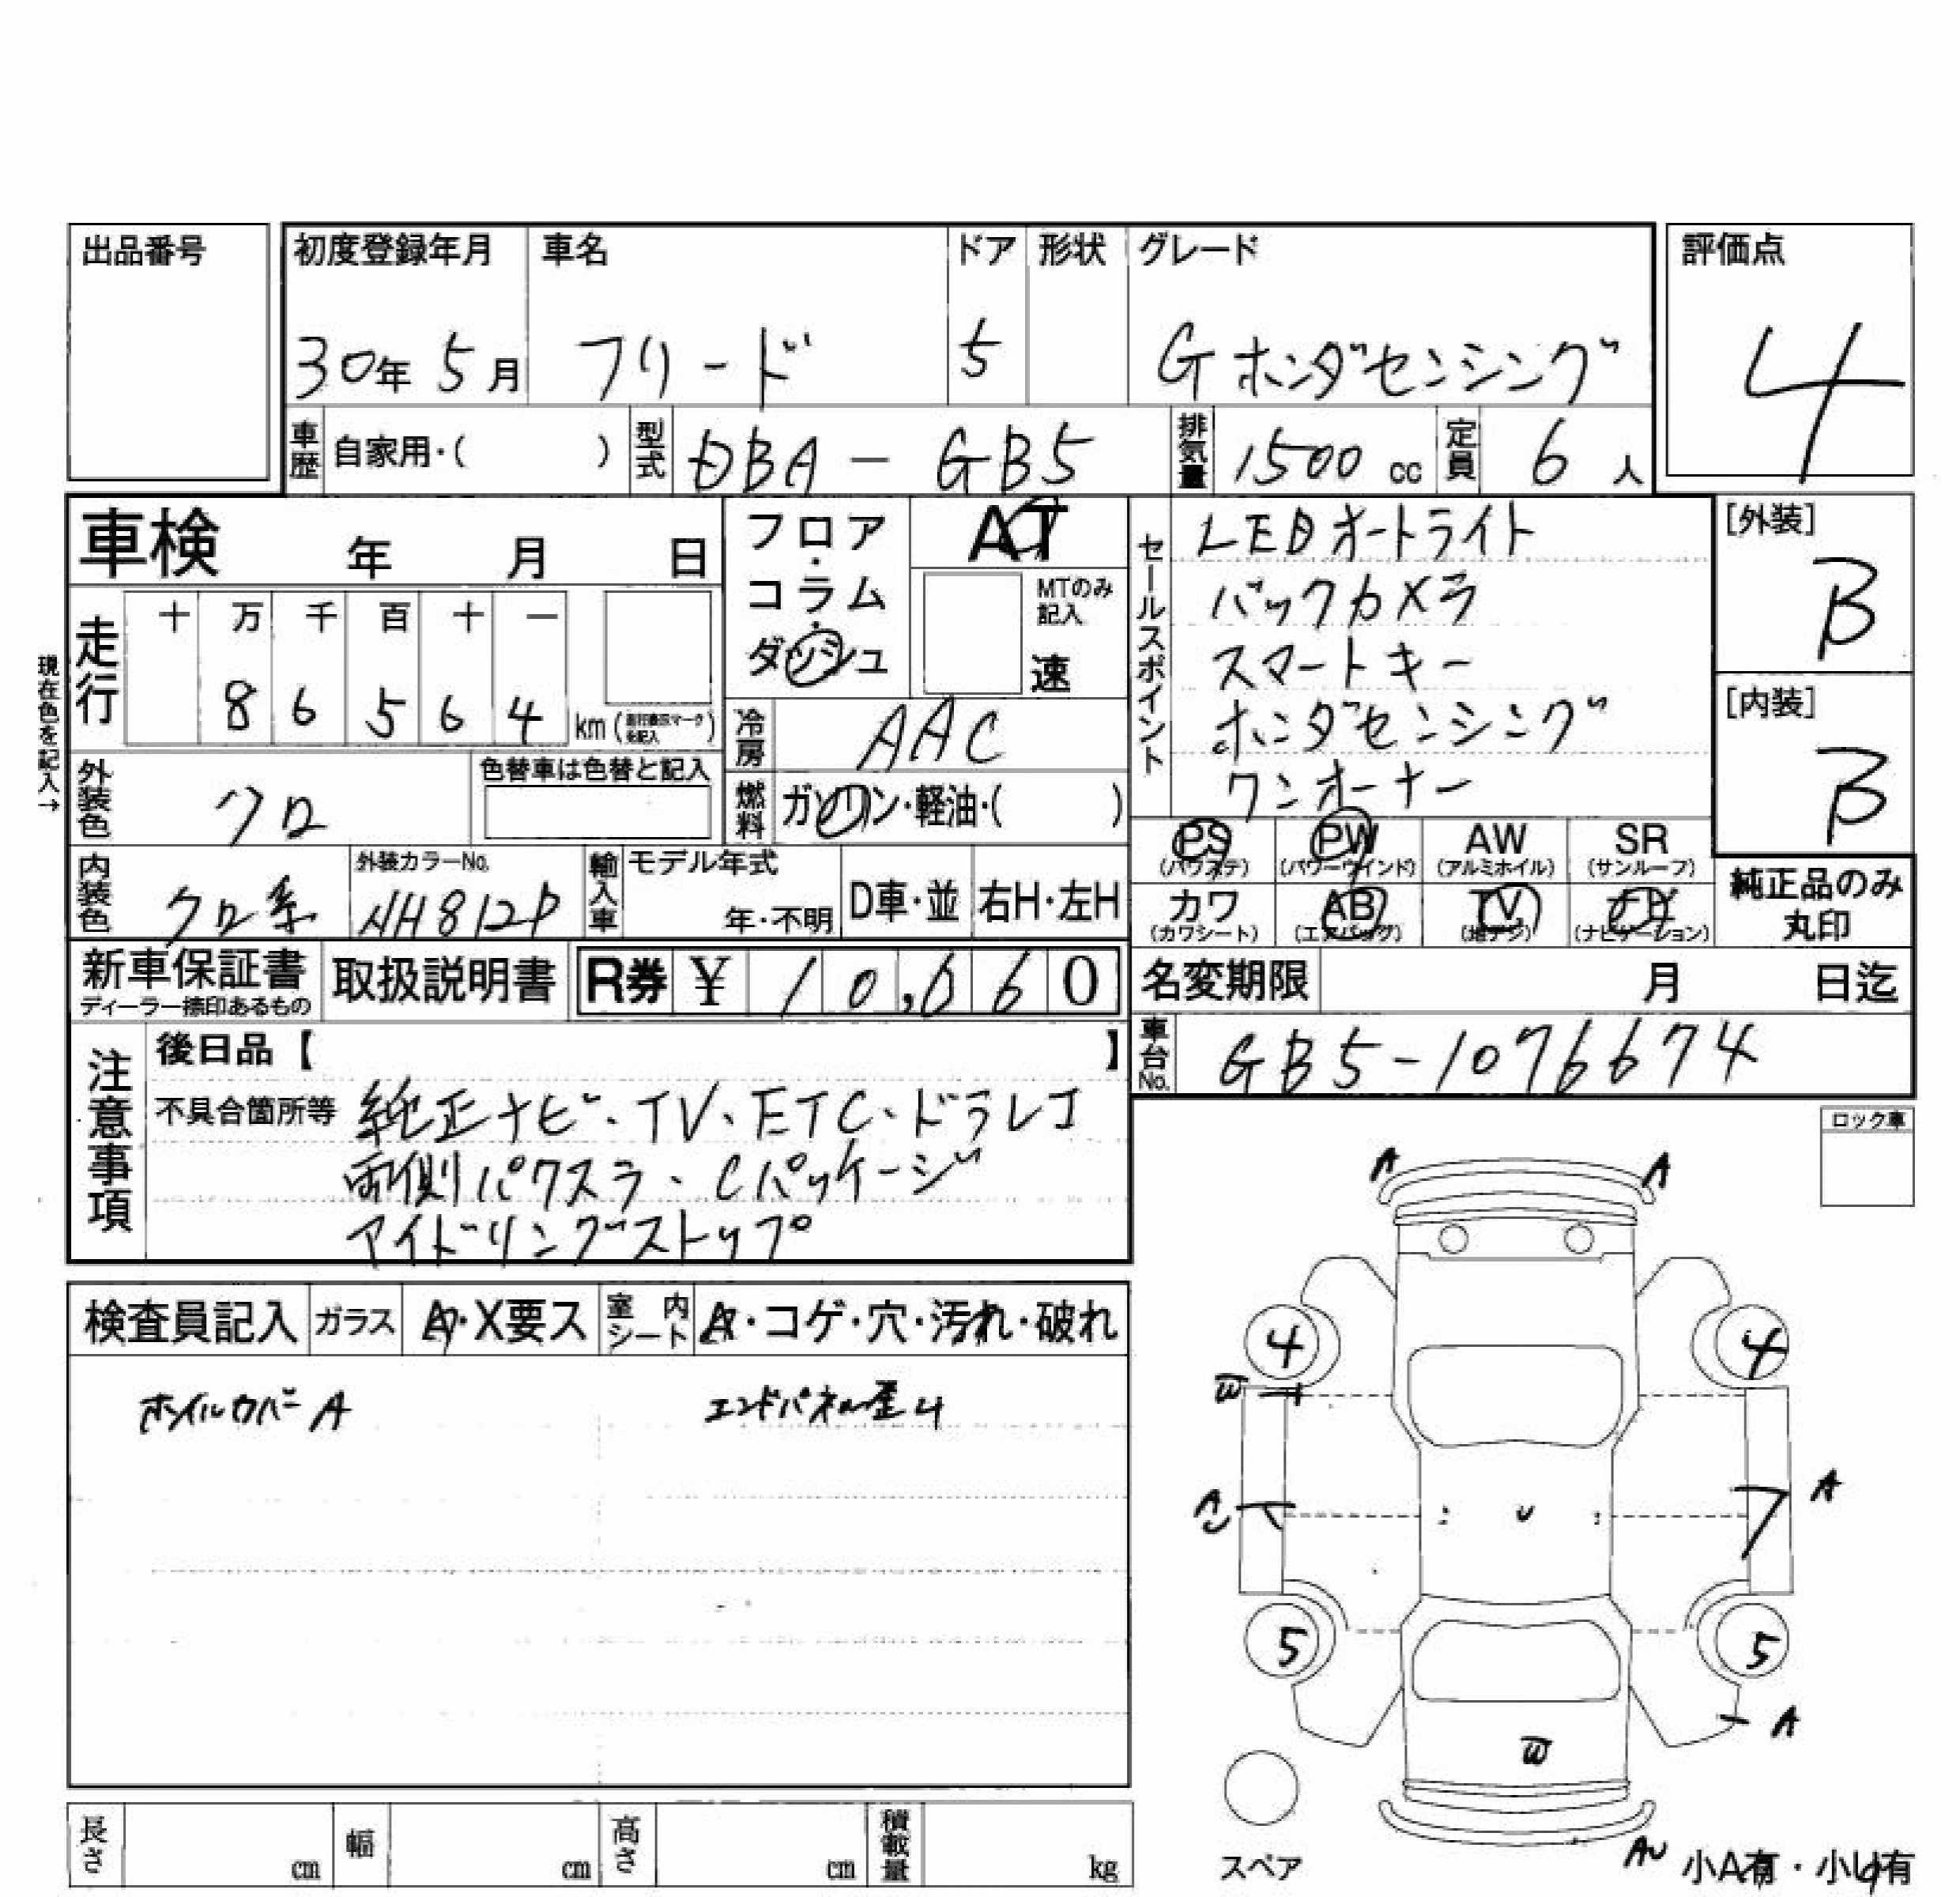 出品番号
初度登録年月 車名 ドア 形状 グレード 評価点
30年 5月 フリード 5 Gホンダセンシング 4
車歴 自家用・( ) 型式 DBA-GB5 排気量 1500 cc 定員 6 人
車検 年 月 日
フロア・コラム・ダッシュ
AT
MTのみ記入
速
セールスポイント
LEDオートライト
バックカメラ
スマートキー
ホンダセンシング
ワンオーナー
[外装]
B
[内装]
B
現在色を記入→
走行 十 万 千 百 十 一
8 6 5 6 4 km (
)
冷房 AAC
燃料 ガソリン・軽油・( )
外装色 クロ 色替車は色替と記入
内装色 クロ系 外装カラーNo. NH812P 輸入車 モデル年式 年・不明 D車・並 右H・左H
PS (パワステ) PW (パワーウインド) AW (アルミホイル) SR (サンルーフ)
カワ (カワシート) AB (エアバッグ) TV (地デジ) (ナビゲーション)
純正品のみ丸印
新車保証書 ディーラー捺印あるもの 取扱説明書 R券 ¥ 10,060
名変期限 月 日迄
車台No. GB5-1076674
注意事項
後日品【 】
不具合箇所等 純正ナビ、TV、ETC、ドラレコ
両側パワスラ、Cパッケージ
アイドリングストップ
ロック車
検査員記入 ガラス A・X要ス 室内シート A・コゲ・穴・汚れ・破れ
ホイルカバーA エンドパネル歪U
A A
4 4
W
A
U A
U
5 5
A
W
スペア
AU 小A有・小U有
長さ cm 幅 cm 高さ cm 積載量 kg